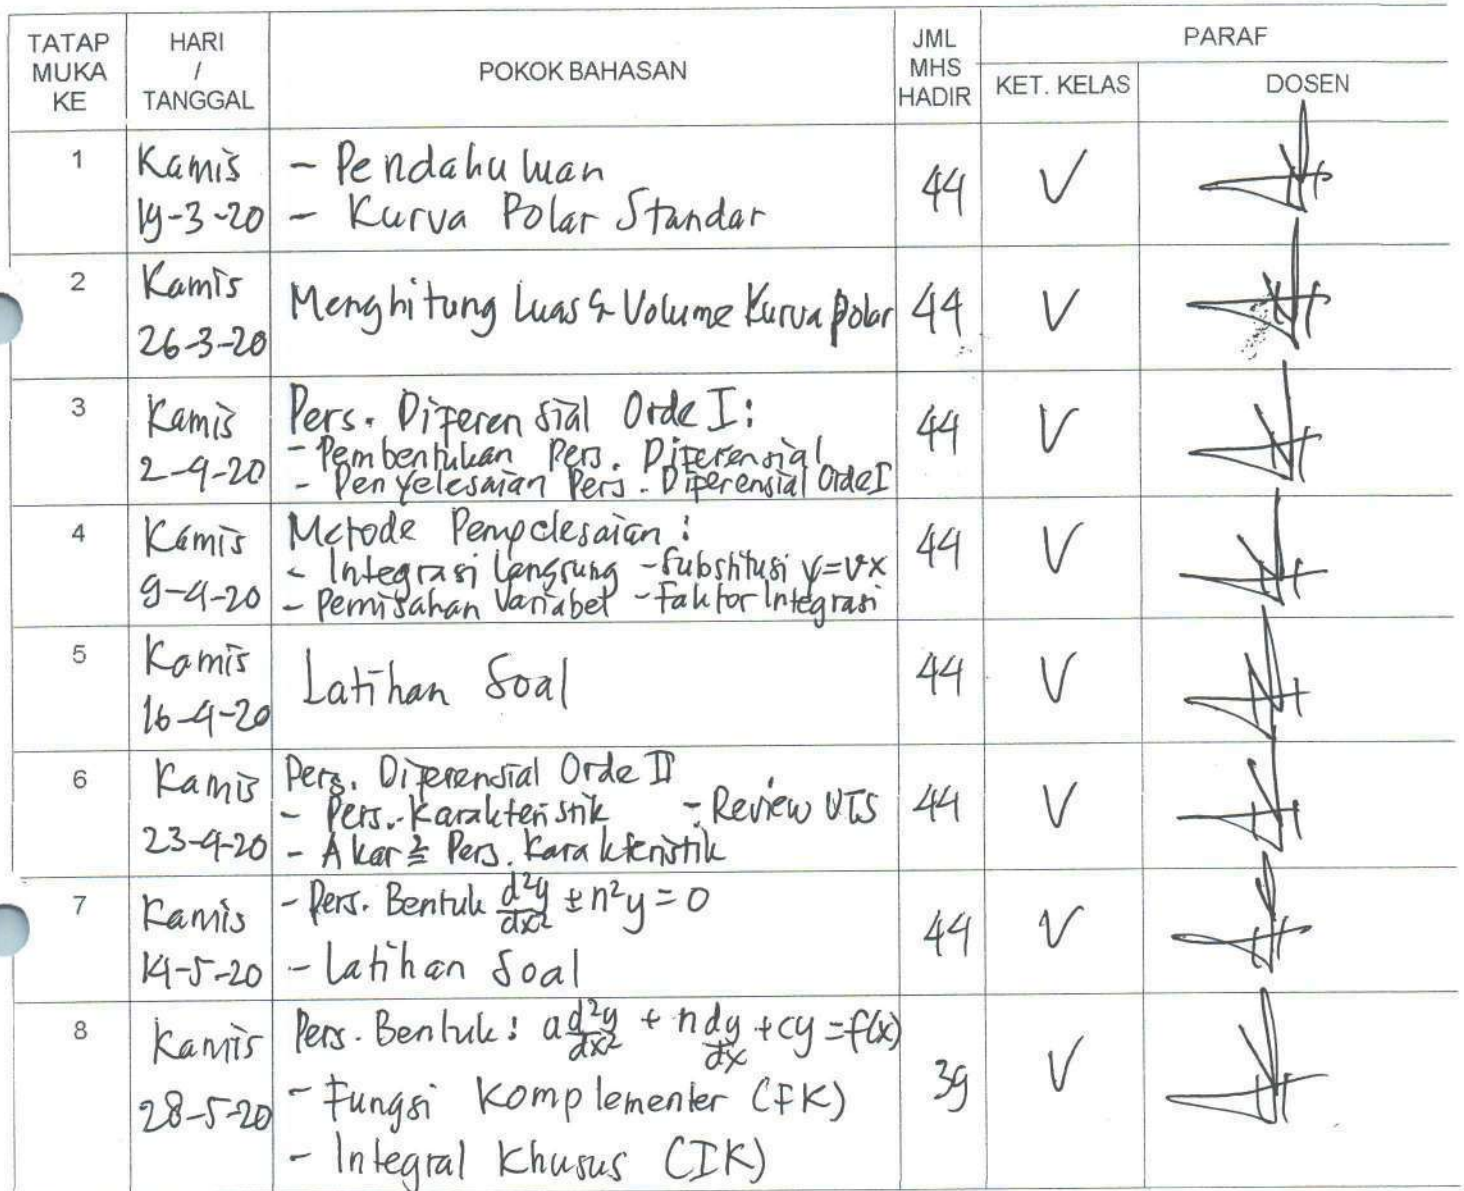 TATAP MUKA KE
HARI / TANGGAL
POKOK BAHASAN
JML MHS HADIR
PARAF
KET. KELAS
DOSEN
1
Kamis
19-3-20
- Pendahuluan
- Kurva Polar Standar
44
V
2
Kamis
26-3-20
Menghitung Luas & Volume Kurva polar
44
V
3
Kamis
2-4-20
Pers. Diferensial Orde I:
- Pembentukan Pers. Diferensial
- Penyelesaian Pers. Diferensial Orde I
44
V
4
Kamis
9-4-20
Metode Penyelesaian :
- Integrasi Langsung - Substitusi y=vx
- Pemisahan Variabel - Faktor Integrasi
44
V
5
Kamis
16-4-20
Latihan Soal
44
V
6
Kamis
23-4-20
Pers. Diferensial Orde II
- Pers. Karakteristik - Review UTS
- Akar² Pers. Karakteristik
44
V
7
Kamis
14-5-20
- Pers. Bentuk d²y/dx² ± n²y = 0
- Latihan Soal
44
V
8
Kamis
28-5-20
Pers. Bentuk : a d²y/dx² + n dy/dx + cy = f(x)
- Fungsi Komplementer (FK)
- Integral Khusus (IK)
39
V